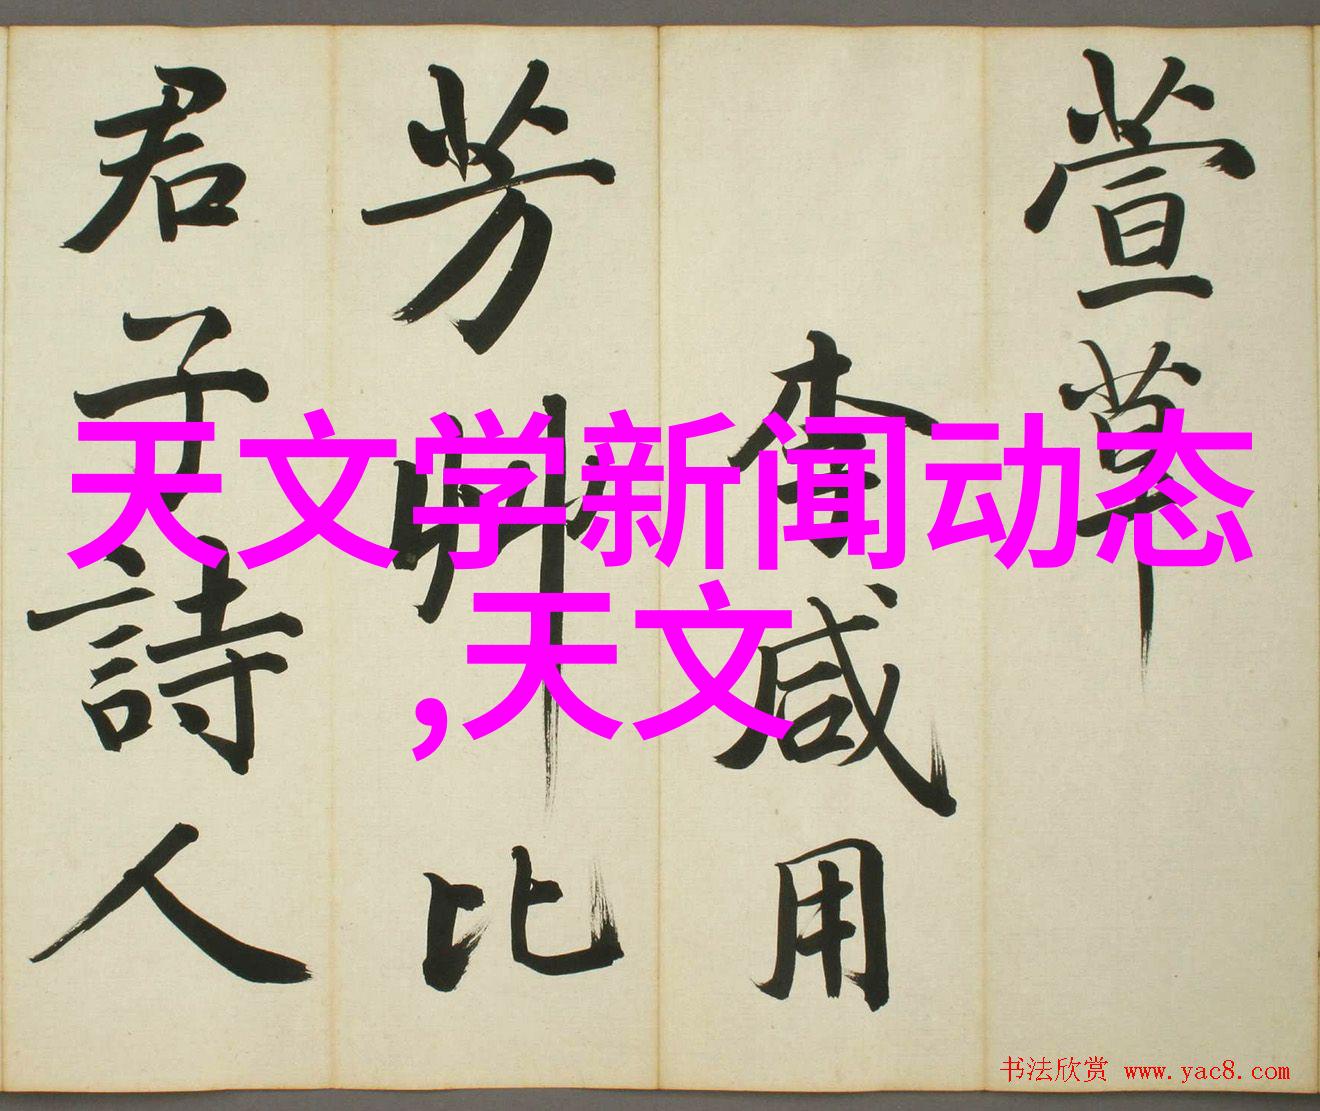 萱草
李咸用
芳艸比
君子詩人
天文学新闻动态
,天文
书法欣赏 www.yac8.com